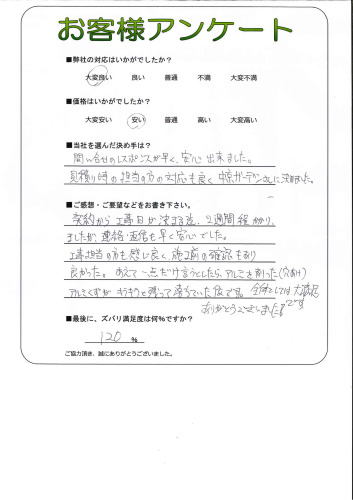 お客様アンケート
■弊社の対応はいかがでしたか？
大変良い 良い 普通 不満 大変不満
■価格はいかがでしたか？
大変安い 安い 普通 高い 大変高い
■当社を選んだ決め手は？
問い合せのレスポンスが早く、安心出来ました。
見積り時の担当の方の対応も良く中京ガーデンさんに決めました。
■ご感想・ご要望などをお書き下さい。
契約から工事日が決まる迄、2週間程かかり
ましたが、連絡・返信も早く安心でした。
工事担当の方も感じ良く、施工前の確認もあり
良かった。あえて一点だけ言うとしたら、アルミを削った(穴あけ)
アルミくずがキラキラと残って落ちていた位です。全体としては大満足
です
ありがとうございました。
■最後に、ズバリ満足度は何％ですか？
120 %
ご協力頂き、誠にありがとうございました。